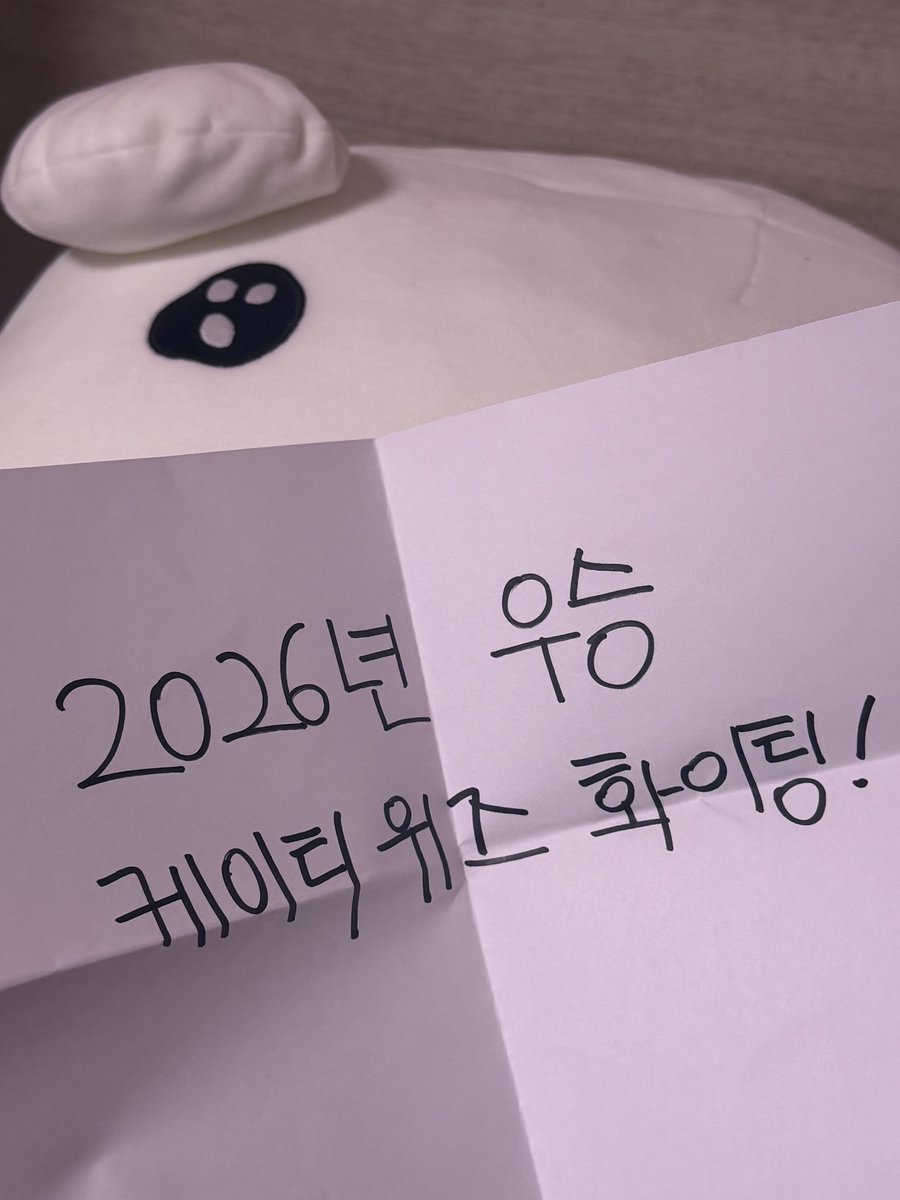 2026년 우승
케이티 위즈 화이팅!